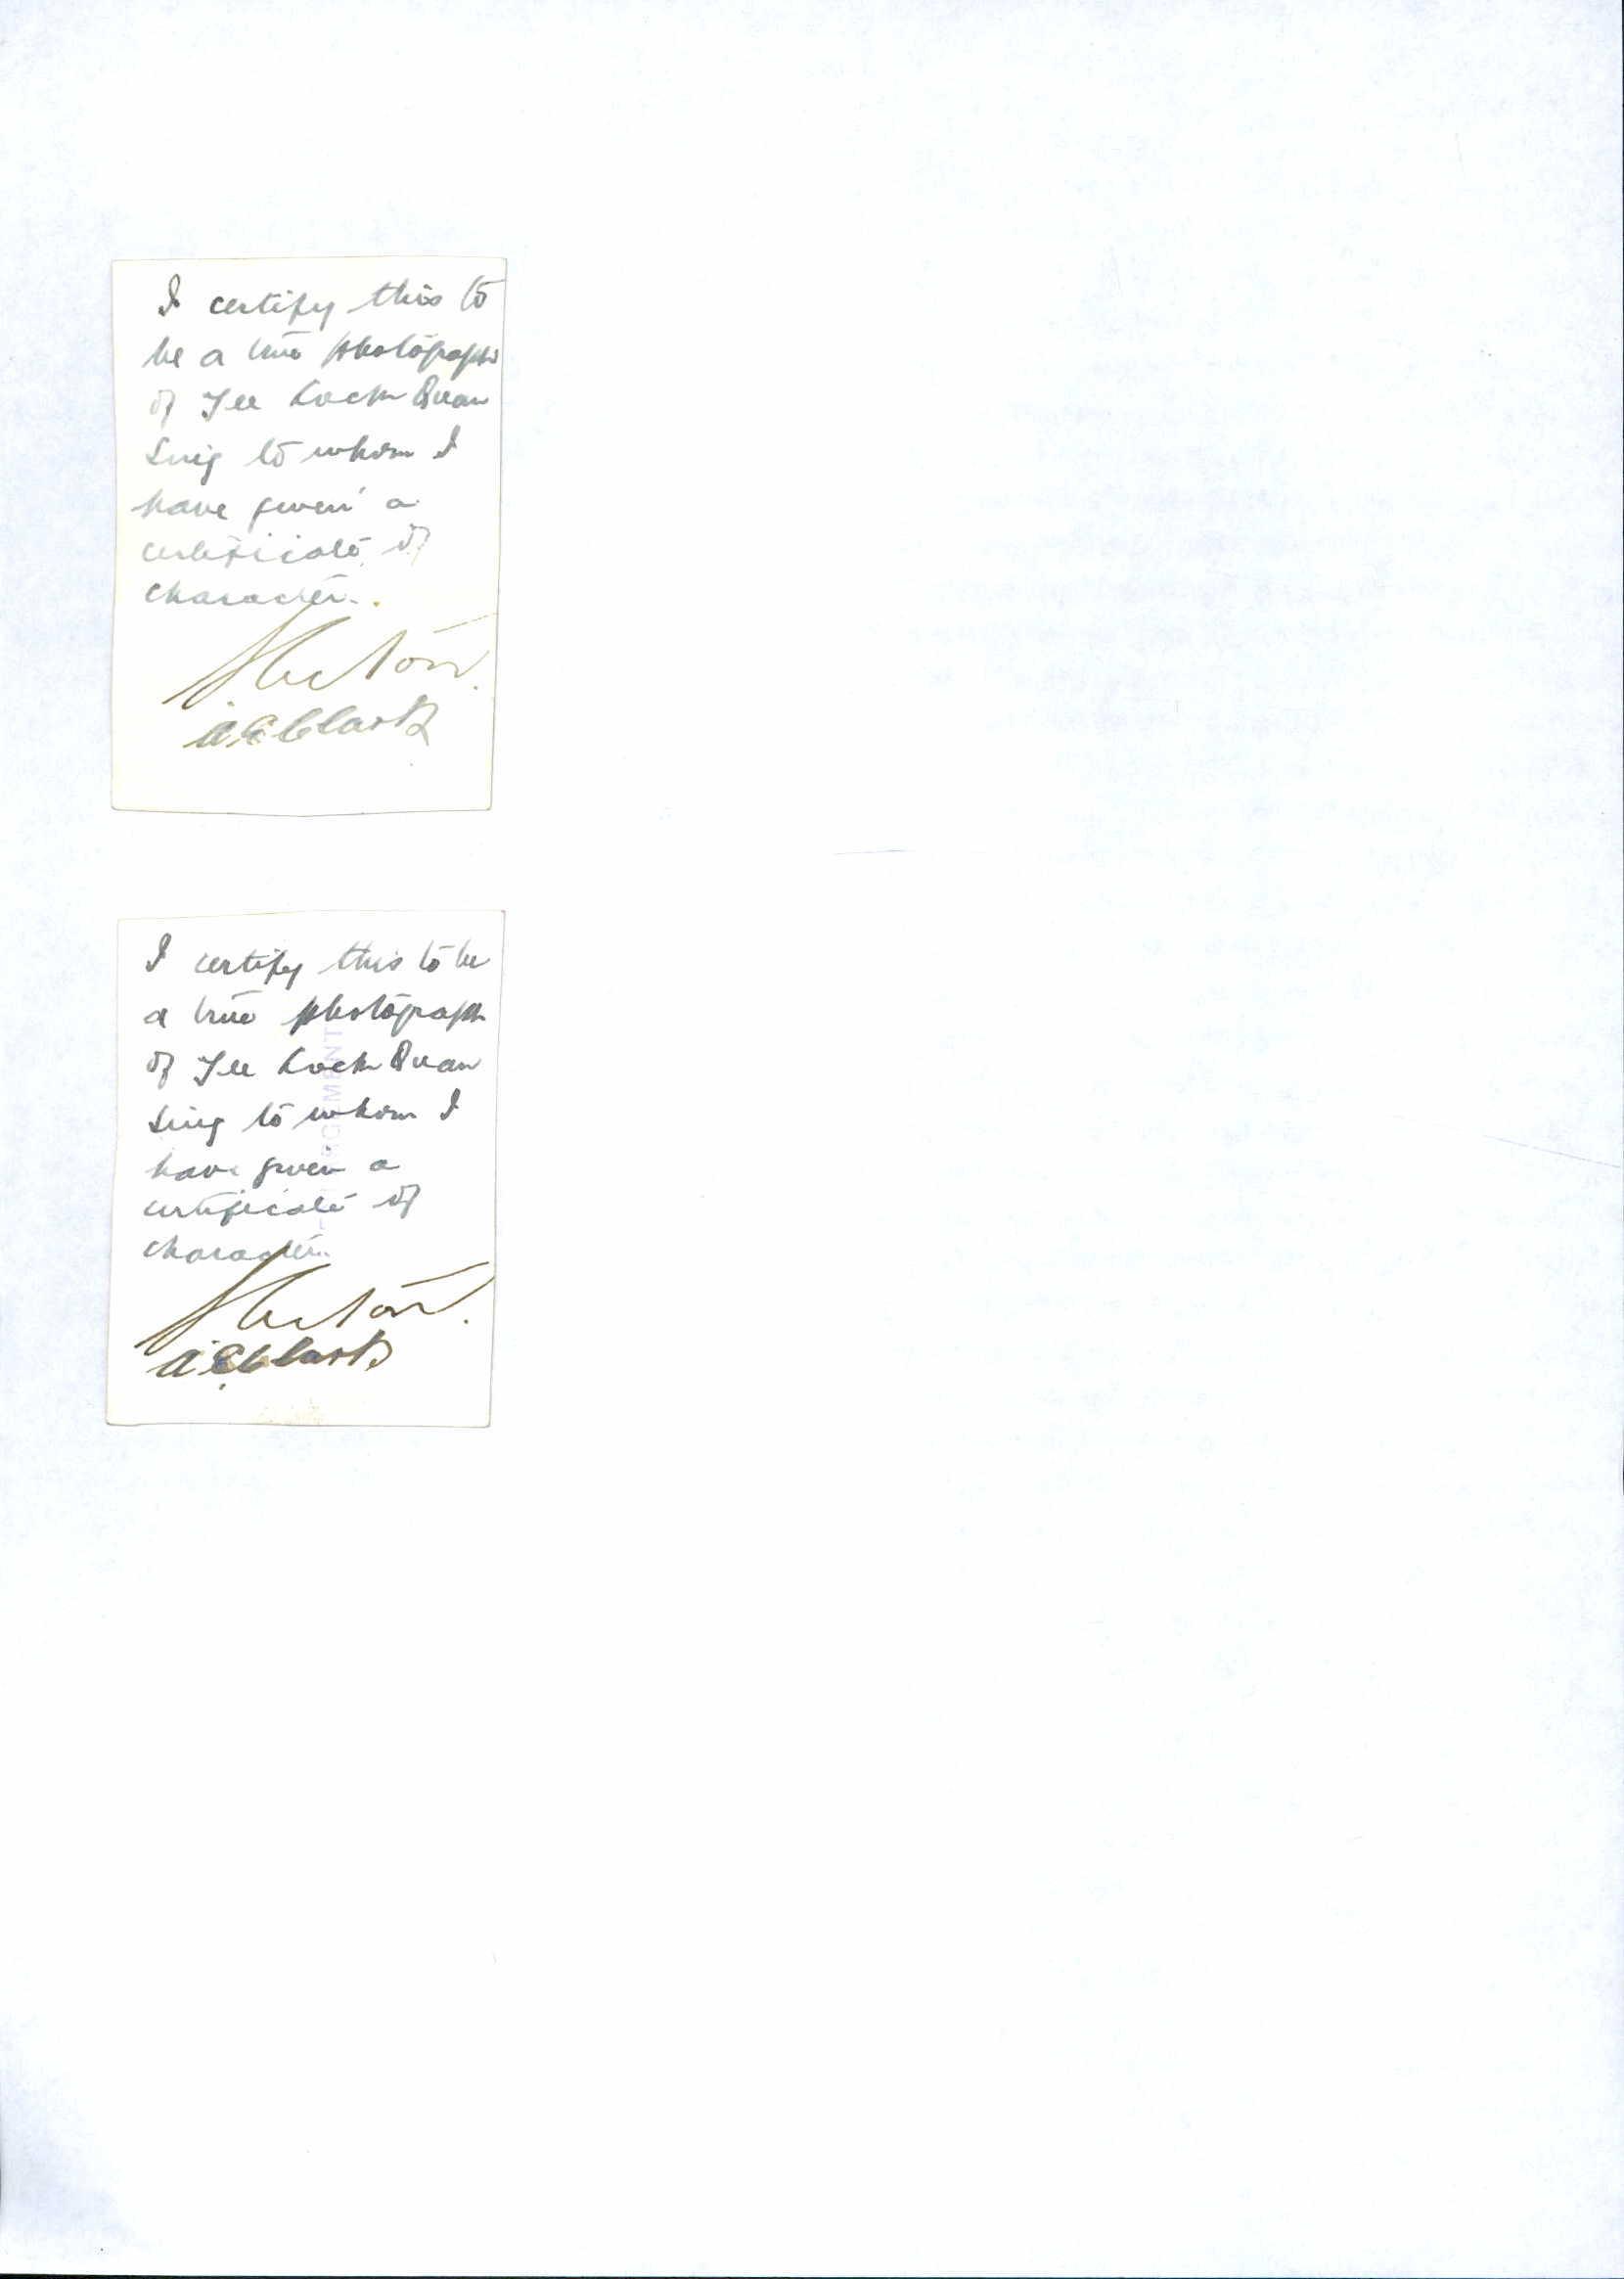 I certify this to
be a true photograph
of Yee Lock Quan
Sing to whom I
have given a
certificate of
character.
A E Clark
I certify this to be
a true photograph
of Yee Lock Quan
Sing to whom I
have given a
certificate of
character.
A E Clark